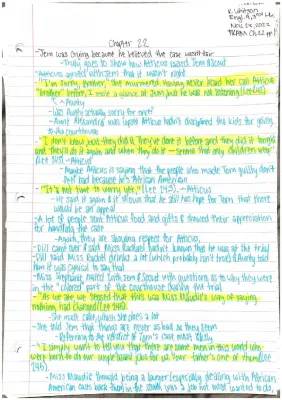 K. Watson
Nov. 15, 2022
TKAM Ch. 22
Chapter 22
-Jem was crying because he believed the case wasn't fair
-Truly goes to show how Atticus raised Jem & Scout
-Atticus agreed with Jem that it wasn't right
-"I'm sorry, brother," she murmured. Having never heard her call Atticus
"brother" before, I stole a glance at Jem, but he was not listening (Lee
↳ -Aunty
-Was Aunty actually sorry for
-Aunt Alexandra was upset Atticus hadn't disciplined the kids for going
to the courthouse
-"I don't know, but they did it. They've done it before and they did it tonight
and they'll do it again and when they do it — seems that only children weep"
(Lee 243). -Atticus
-Maybe Atticus is saying that the people who made Tom guilty don't
feel bad because he's African American
-"It's not time to worry yet," (Lee 243). -Atticus
-He said it again & it shows that he still has hope for Tom that there
would be an appeal
-A lot of people sent Atticus food and gifts & showed their appreciation
for handling the case
-Again, they are showing respect for Atticus
-Dill came over & said Miss Rachel
-Dill said Miss Rachel drinks a lot (which probably isn't true) & Aunty told
him it was cynical to say that
-Miss Stephanie wanted both Jem & Scout with questions as to why they were
in the "colored" part of the courthouse during the trial
-"As we ate, we sensed that this was Miss Maudie's way of saying
nothing had changed (Lee
-She made cake, which she does a lot
-She told Jem that things are never as bad as they seem
-Referring to the verdict of Tom's case most likely
-"I simply want to tell you that there are some men in this world who
were born to do our unpleasant jobs for us. Your father's one of them (Lee
245)
-Miss Maudie thought being a lawyer (especially dealing with African
American cases back then in the south) was a job not most wanted to do,